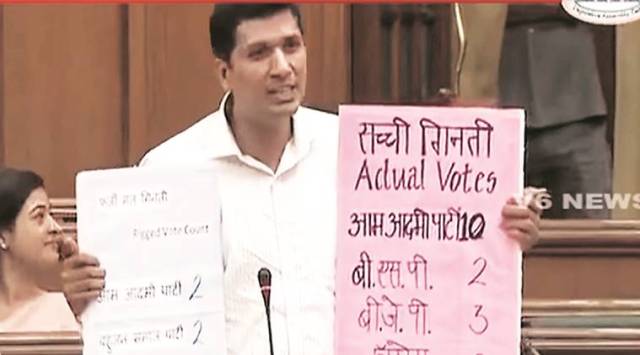 Legislative Assembly
फर्जी मत गिनती
Rigged Vote Count
आम आदमी पार्टी 2
बहुजन समाज पार्टी 2
सच्ची गिनती
Actual Votes
आम आदमी पार्टी 10
बी.एस.पी. 2
बी.जे.पी. 3
V6 NEWS